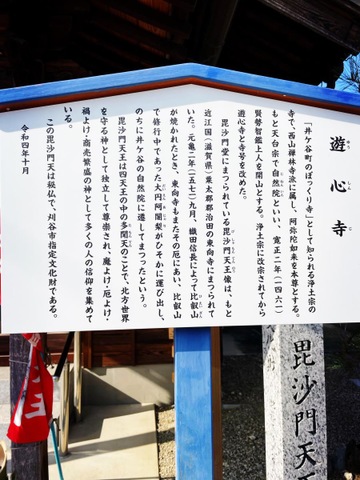 遊心寺
「井ケ谷町のぽっくり寺」としてしられる浄土宗の
寺で、西山禅林寺派に属し、阿弥陀如来を本尊とする。
もと天台宗で自然院といい、寛正二年(一四六一)
賢誉智鑑上人を開山とする。浄土宗に改宗されてから
遊心寺と寺号を改めた。
毘沙門堂にまつられている毘沙門天王像は、もと
近江国(滋賀県)栗太郡郡治田の東向寺にまつられて
いた。元亀二年(一五七一)九月、織田信長によって比叡山
が焼かれたとき、東向寺もまたその厄にあい、比叡山
で修行中であった大円阿闍梨がひそかに運び出し、
のちに井ケ谷の自然院に遷してまつったという。
毘沙門天王は四天王の中の多聞天のことで、北方世界
を守る神として独立して尊崇され、魔よけ・厄よけ・
禍よけ・商売繁盛の神として多くの人の信仰を集めて
いる。
この毘沙門天は秘仏で、刈谷市指定文化財である。
令和四年十月
毘沙門天王